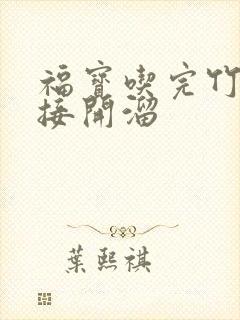 福寶喫完竹
接開溜
葉熙祺